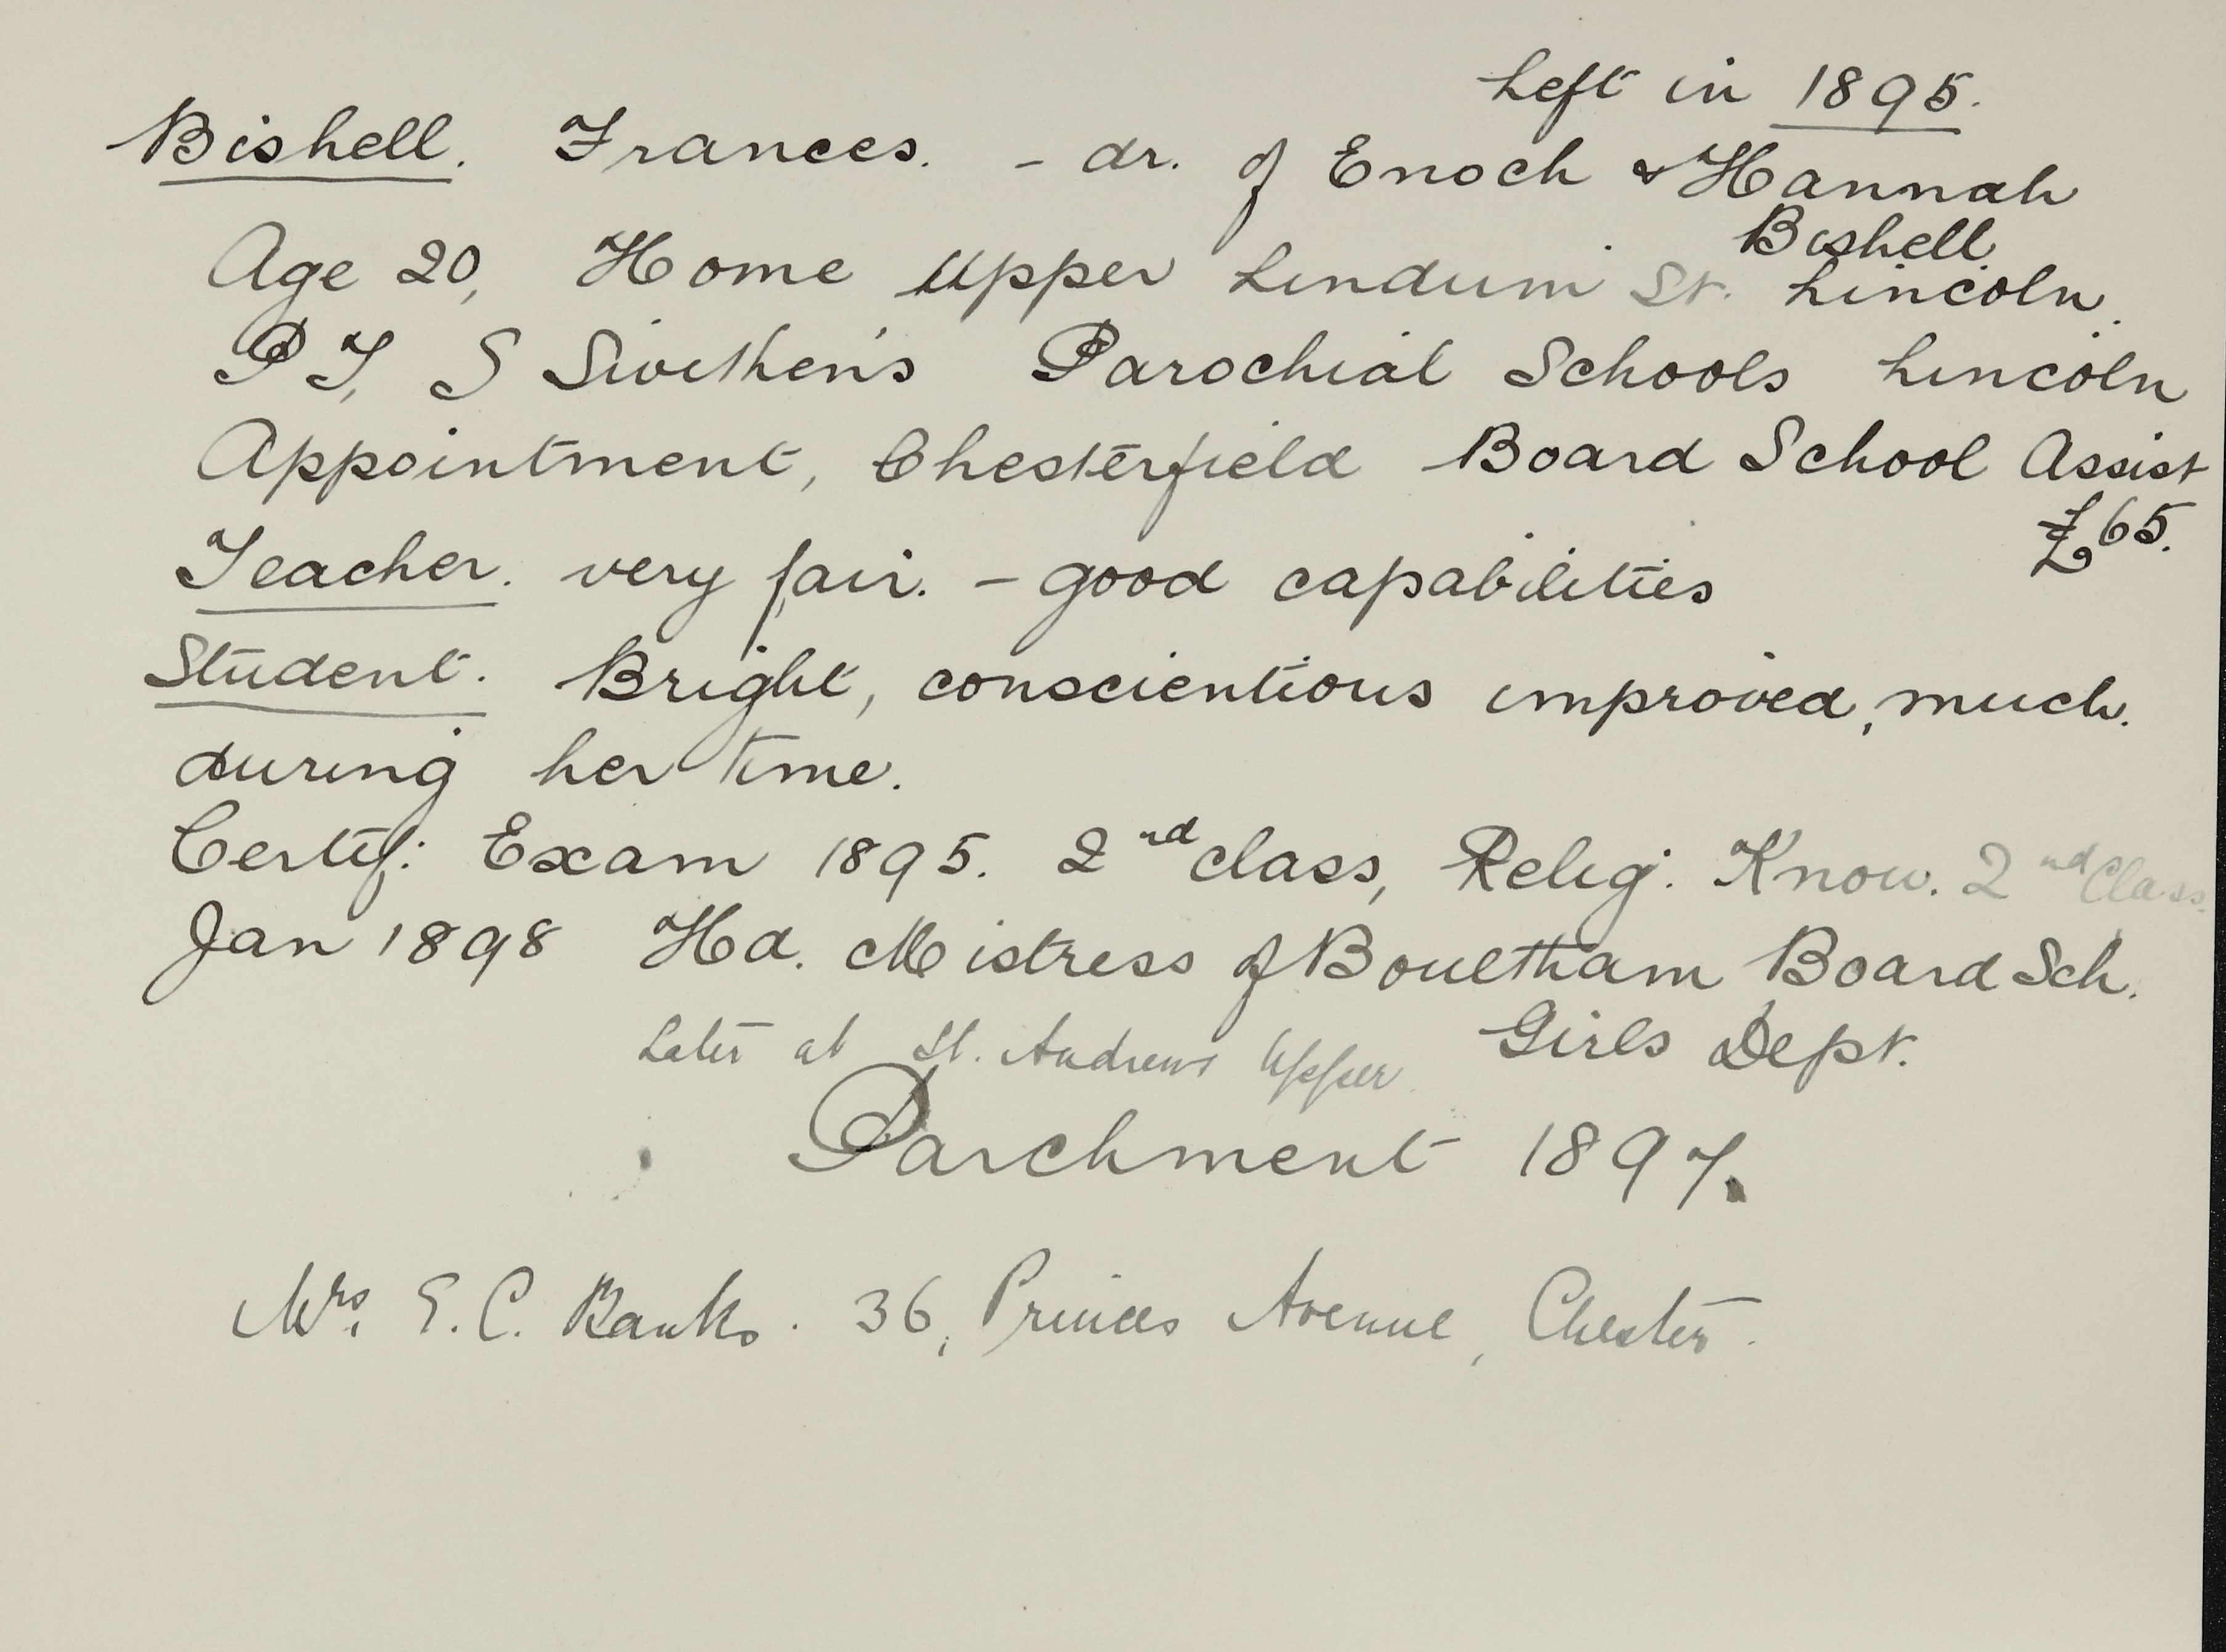 Left in 1895.
Bishell. Frances. - dr. of Enoch & Hannah
Bishell.
Age 20, Home Upper Lindum St. Lincoln.
P T, S Swithen's Parochial Schools Lincoln
Appointment, Chesterfield Board School Assist
£65.
Teacher. very fair. - good capabilities
Student. Bright, conscientious improved, much.
during her time.
Certif: Exam 1895. 2nd class, Relig: Know. 2nd Class.
Jan 1898 Hd. Mistress of Boultham Board Sch.
Girls Dept.
Later at St. Andrews Upper.
Parchment 1897.
Mrs. E. C. Banks. 36, Princes Avenue, Chester.